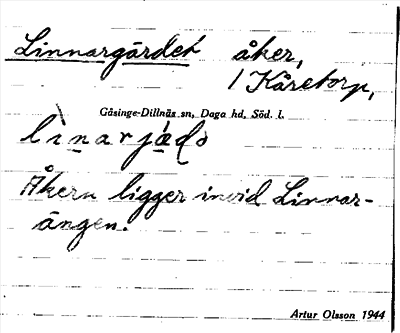 Linnargärdet åker,
/ Kåretorp,
Gåsinge-Dillnäs sn, Daga hd, Söd. l.
Åkern ligger invid Linnar-
ängen.
Artur Olsson 1944